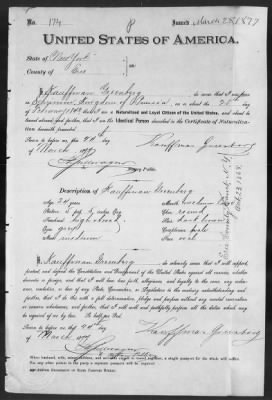 No. 174
8
Issued March 28 1877
UNITED STATES OF AMERICA.
State of New York
County of Erie
I, Kauffman Greenberg do swear that I was born in
Kingdom of on or about the 28th
day of that I am a Naturalized and Loyal Citizen of the United States, and about to
travel abroad, and further, that I am the Identical Person described in the Certificate of Naturalization
herewith presented.
Sworn to before me, this 24th
day of March 1877
Kauffman Greenberg
Notary Public.
Description of Kauffman Greenberg
Age: 24 years
Mouth:
Stature: 5 feet inches Eng.
Chin: round
Forehead: high
Hair: dark brown
Eyes: grey
Complexion:
Nose: medium
Face: oval
Erie County Court N.Y.
I, Kauffman Greenberg do solemnly swear that I will support,
protect, and defend the Constitution and Government of the United States against all enemies, whether
domestic or foreign, and that I will bear true faith, allegiance, and loyalty to the same, any ordi-
nance, resolution, or law of any State, Convention, or Legislature to the contrary notwithstanding; and
further, that I do this with a full determination, pledge, and purpose, without any mental reservation
or evasion whatsoever; and further, that I will well and faithfully perform all the duties which may
be required of me by law. So help me God.
Sworn to before me, this 24th
day of March 1877
Kauffman Greenberg
Notary Public.